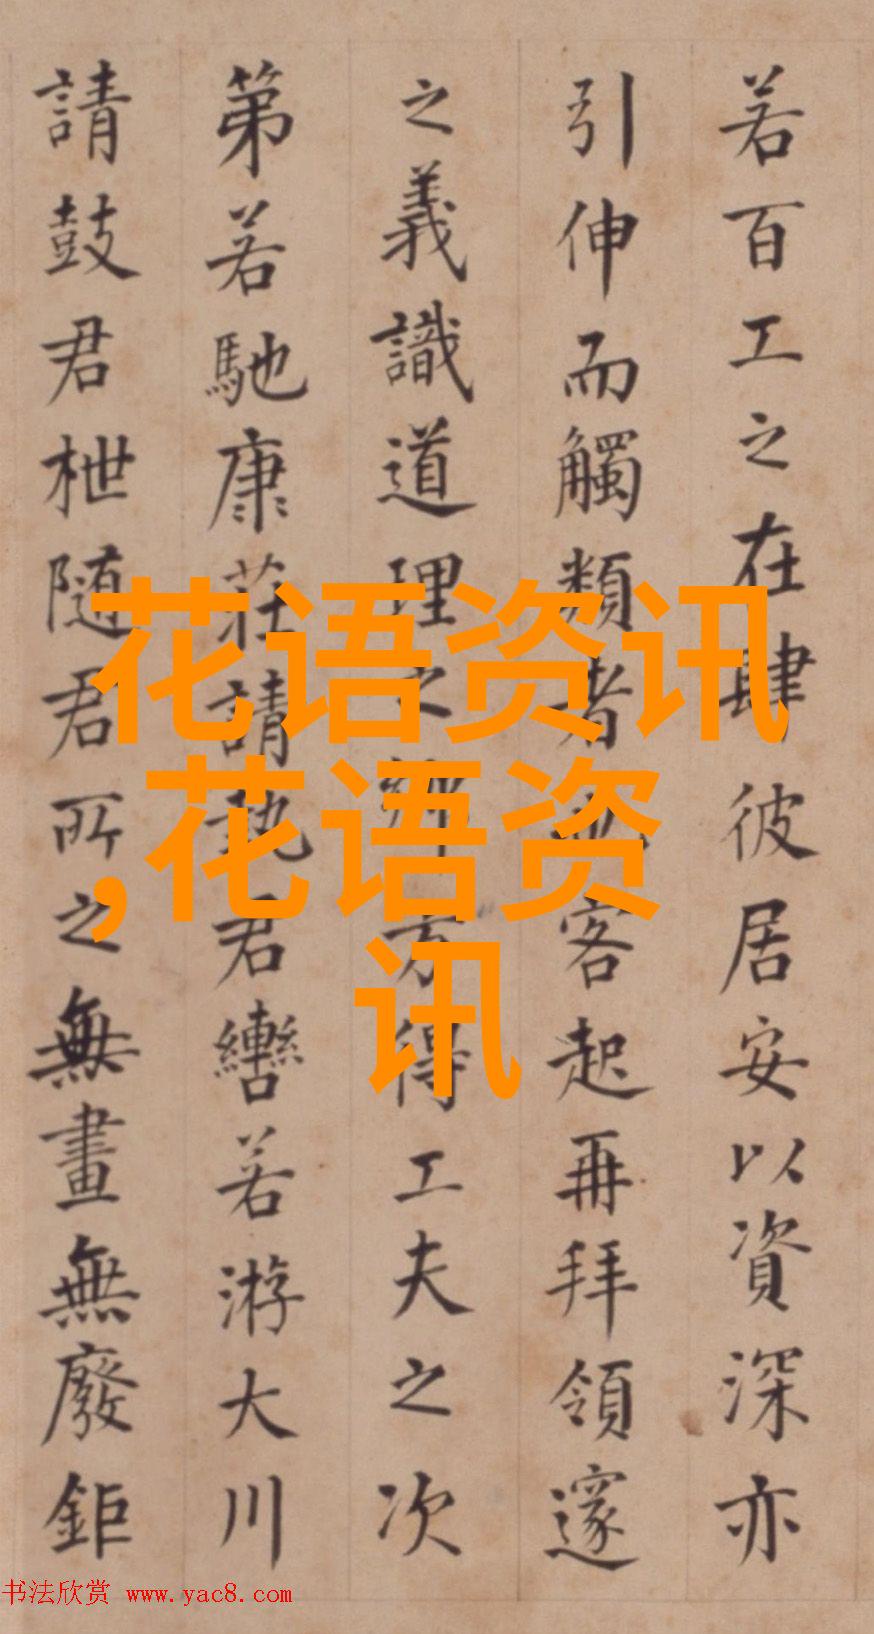 若百工之在肆彼居安以資深亦
引伸而觸類者客起再拜領邃
之義識道理之鄉方得工夫之次
第若馳康莊請執君轡若游大川
請鼓君枻随君所之無畫無廢鉅
花语资讯
,花语资
讯
书法欣赏 www.yac8.com